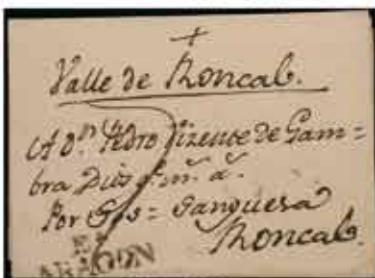 Valle de Roncal.
A D.n Pedro Vizente de Gam=
bra Dios g.e m.s a.s
Por Sos = Sanguesa
Roncal.
ARAGON